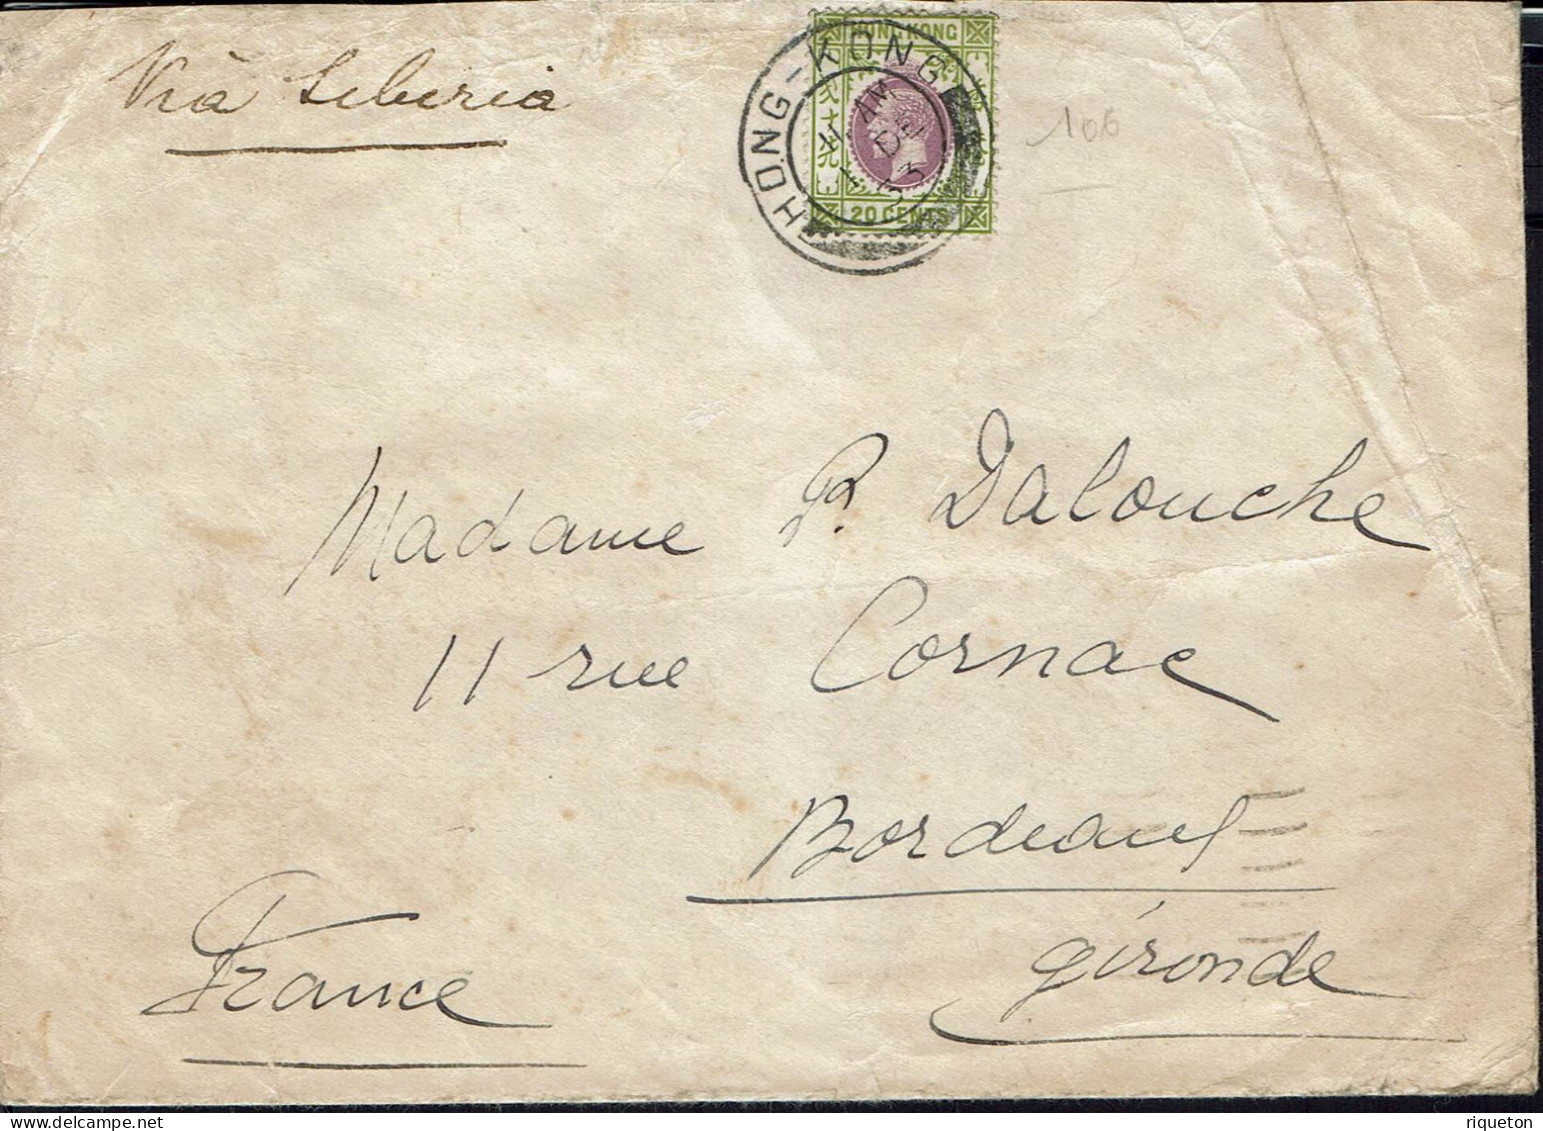 Via Siberia
HONG KONG
HONG-KONG
AM
DE
13
20 CENTS
106
Madame P. Dalouche
11 rue Cornac
Bordeaux
Gironde
France
riqueton